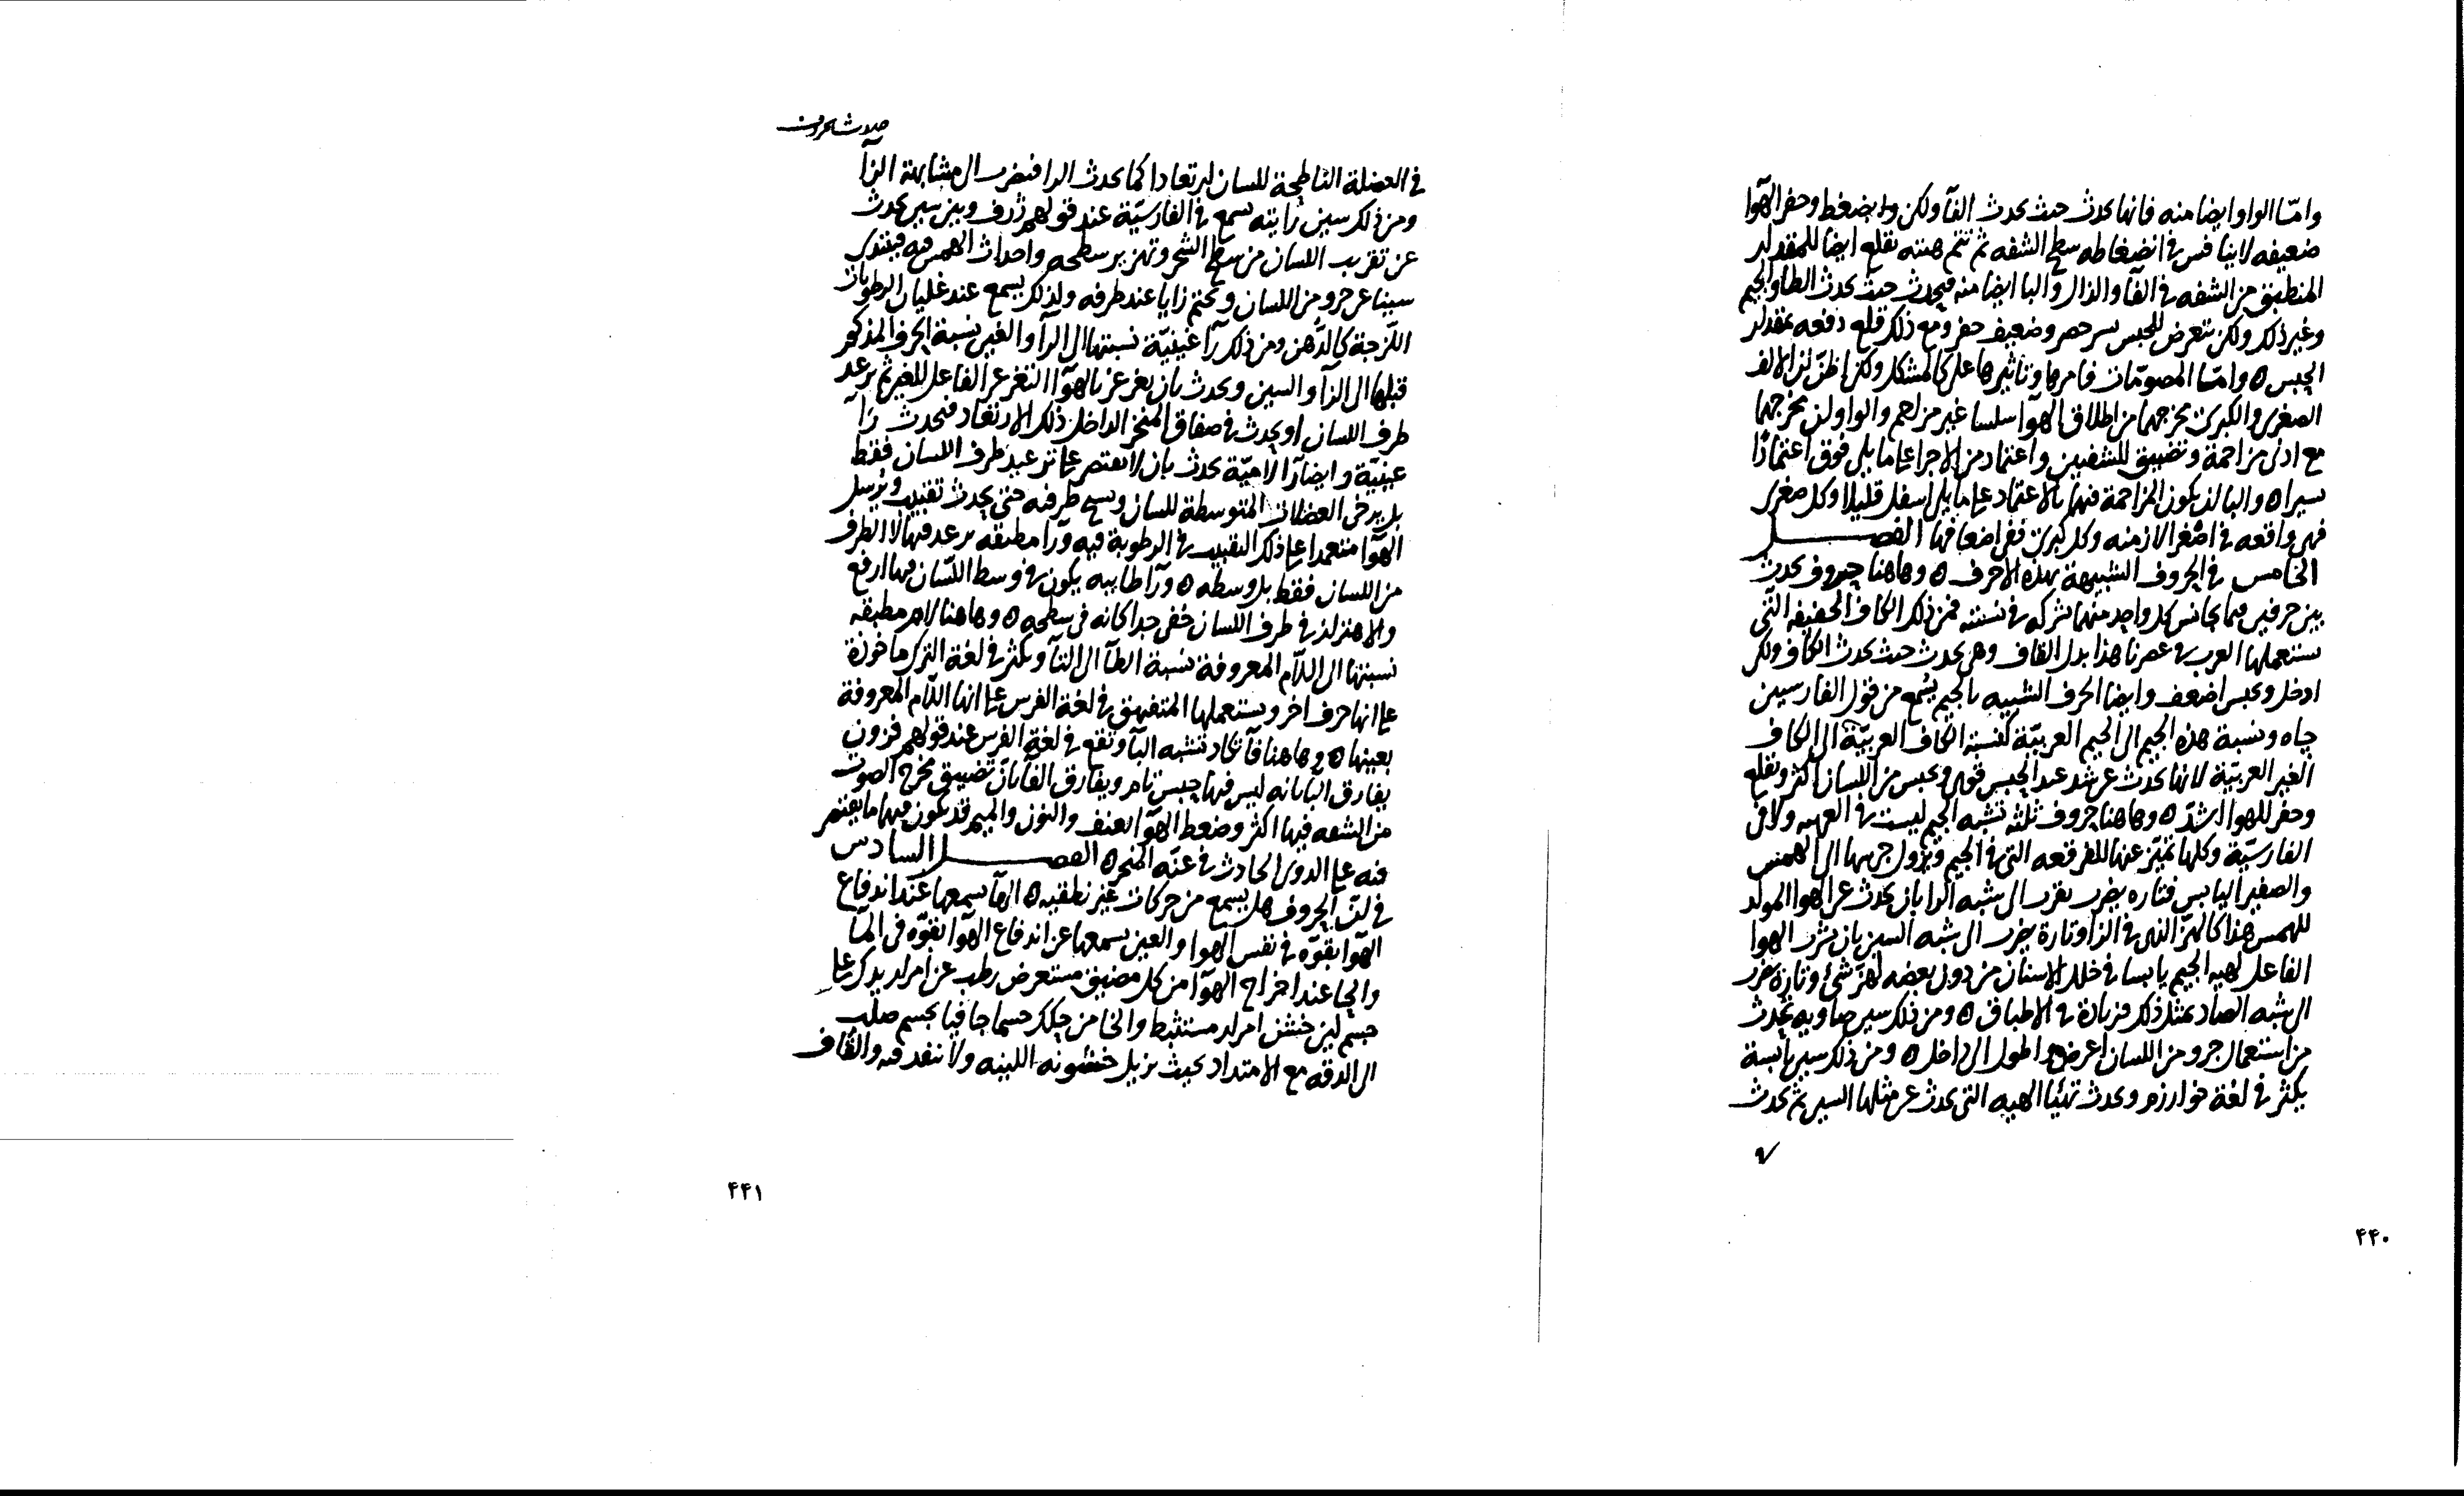 وامّا الواو ايضا منه فانها تحدث حيث تحدث الفآ ولكن وبضغط وحفز الهوآ
ضعيفه لا ينافس في انضغاطه سطح الشفه ثم تتم هيئته بقلع ايضا للمقدار
المنطبق من الشفه في الفآ والذال والبا ايضا منه فيحدث حيث تحدث الطا والجيم
وغير ذلك ولكن بتعرض للحبس حصر وضعيف حفز ومع ذلك قلع دفعه بمقدار
الحبس ٥ وامّا المصوتات فامرها وتاثيرها علي كالمشكل ولكن اظنّ ان الالف
الصغرى والكبرى مخرجهما من اطلاق الهوآ سلسا غير مزاحم والواو ان مخرجهما
مع ادنى مزاحمة وتضييق للشفتين واعتماد من الاجرا علي ما يلي فوق اعتمادًا
يسيرا ٥ واليا ان يكون المزاحمة فيهما بالاعتماد علي ما يلي اسفل قليلا وكل صغرى
فهى واقعه في اصغر الازمنه وكل كبرى ففي اضعافها الفصــل
الخامس في الحروف الشبيهة بهذه الاحرف ٥ وهاهنا حروف تحدث
بين حرفين مما يجانس كل واحد منهما بشركه في نسبته فمن ذلك الكاف الخفيفه التى
يستعملها العرب في عصرنا هذا بدل القاف وهى تحدث حيث تحدث الكاف ولكن
ادخل وبحبس اضعف وايضا الحرف الشبيه بالجيم يُسمع من قول الفارسيين
چاه ونسبة هذه الجيم الى الجيم العربيّة كنسبة الكاف العربيّة الى الكاف
الغير العربيّة لانها تحدث عن شد عند الحبس قوى وبحبس من اللسان اكثر وبقلع
وحفز للهوا اشدّ ٥ وهاهنا حروف ثلثه تشبه الجيم ليست في العربيه ولا في
الفارسيّة وكلها تميّز عنها للفرقعه التى في الجيم وتزول جرسها الى الهمس
والصفير اليابس فتاره يضرب بقرب الى شبه الزا بان يحدث عن الهوا المولد
للهمس هذا كالهزّ الذى في الزا وتارة يضرب الى شبه السين بان يسرب الهوا
الفاعل لهيه الجيم يابسا في خلل الاسنان من دون بعضه لهز شئ وتارة يضرب
الى شبه الصاد بمثل ذلك فزيادة في الاطباق ٥ ومن ذلك سين صاديه تحدث
من استعمال جرو من اللسان اعرض واطول الى داخل ٥ ومن ذلك سين يابسة
يكثر في لغة خوارزم وتحدث تهيّا الهيه التى تحدث عن مثلها السين ثم تحدث
٤٤٠
حدوث الحروف
في العضلة الناطحة للسان ارتعادا كما يحدث الزا فيضرب الى مشابهة الزآ
ومن ذلك سين زاييه تسمع في الفارسيّة عند قولهم ژرف وبين سين تحدث
عن تقريب اللسان من سطح الشجر وتهزيز سطحه واحداث الهمس فيه فيبتدى
سينا عن جرو من اللسان وتختم زايا عند طرفه ولذلك يسمع عند غليان الرطوبات
اللّزجة كالدّهن ومن ذلك رآ غينيّة نسبتها الى الرآ والغين نسبة الحرف المذكور
قبلها الى الزآ والسين وتحدث بان يغرغر بالهوآ التغرغر الفاعل للغين ثم يرعد
طرف اللسان او يحدث في صفاق المنخر الداخل ذلك الارتعاد فتحدث رآ
غينيّة وايضا رآ لاميّة تحدث بان لا يقتصر علي ترعيد طرف اللسان فقط
بل يرخى العضلات المتوسطة للسان ويشنج طرفه حتى يحدث تقبيب ويُرسل
الهوآ معتمدا علي ذلك التقبيب في الرطوبة فيه ورآ مطبقه يرعد فيها لا الطرف
من اللسان فقط بل وسطه ٥ ورآ طاييه يكون في وسط اللسان فيها ارفع
والاهتزاز في طرف اللسان خفى جدا كانه في سطحه ٥ وهاهنا لام مطبقه
نسبتها الى اللآم المعروفة نسبة الطآ الى التآ ويكثر في لغة الترك ماخوذة
علي انها حرف اخر ويستعملها المتفيهق في لغة الفرس علي انها اللآم المعروفة
بعينها ٥ وهاهنا فآ تكاد تشبه البآ وتقع في لغة الفرس عند قولهم فزون
يفارق البا بانه ليس فيها حبس تام ويفارق الفآ بانّ تضييق مخرج الصوت
من الشفه فيها اكثر وضغط الهوآ بعنف والنون والميم قد يكون فيهما ما يقتصر
فيه علي الدوى الحادث في غنّه المنخر ٥ الفصــل السادس
في انّ الحروف هل يسمع من حركات غير نطقيه ٥ الهآ تسمعها عند اندفاع
الهوآ بقوّه في نفس الهوا والعين تسمعها عن اندفاع الهوآ بقوّه في المآ
والحا عند اخراج الهوآ من كل مضيق مستعرض رطب عن امرار يدك علي
جسم لين خشن امرار مستثبط والخا من حكك جسما جافيا بجسم صلب
الى الدقه مع الامتداد بحيث يزيل خشونه اللينه ولا ينفد فيه والقاف
٤٤١